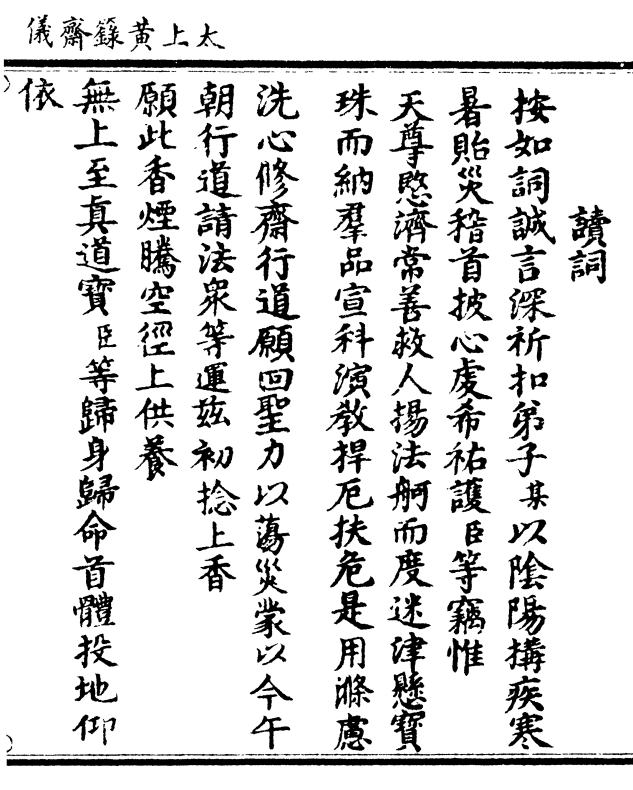 太上黃籙齋儀
讀詞
按如詞誠言深祈扣弟子某以陰陽搆疾寒
暑貽災稽首披心虔希祐護臣等竊惟
天尊愍濟常善救人揚法舸而度迷津懸寶
珠而納羣品宣科演教捍厄扶危是用滌慮
洗心修齋行道願回聖力以蕩災蒙以今午
朝行道請法衆等運茲初捻上香
願此香煙騰空徑上供養
無上至眞道寶臣等歸身歸命首體投地仰
依